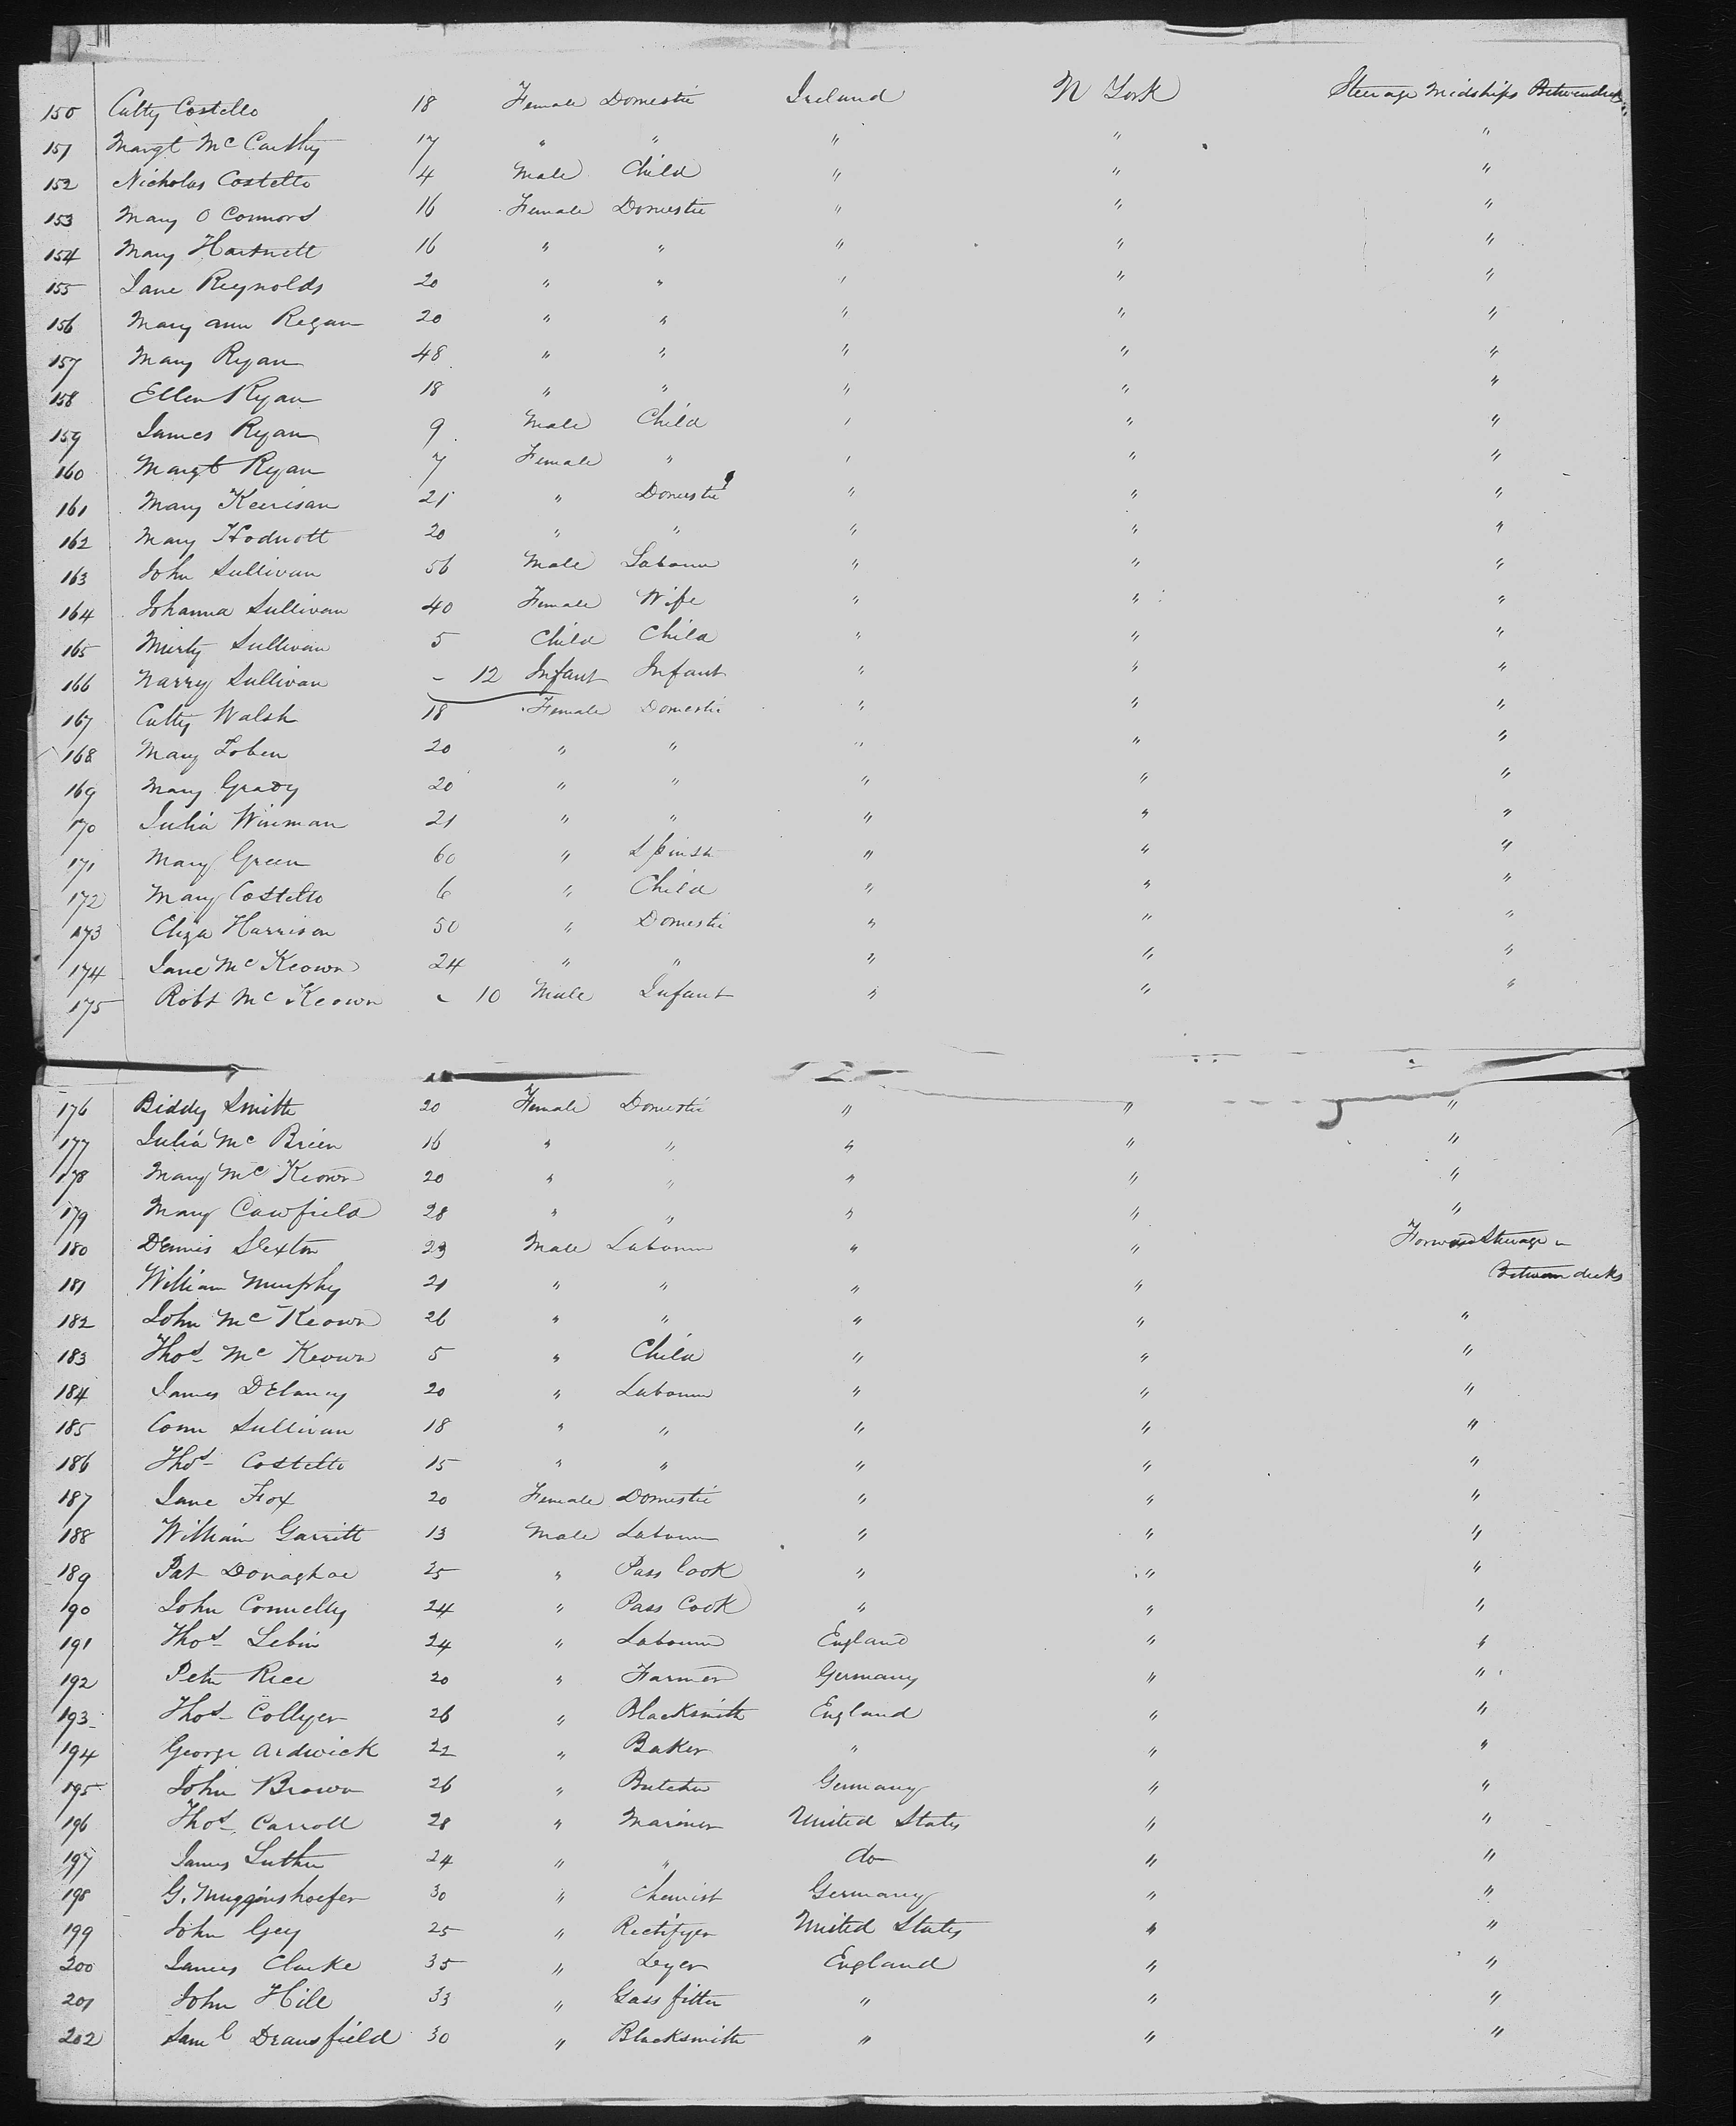 150 Catty Costello 18 Female Domestic Ireland N York Steerage Midships Between decks
151 Margt McCarthy 17 " " " " "
152 Nicholas Costello 4 Male Child " " "
153 Mary O Connors 16 Female Domestic " " "
154 Mary Hartnett 16 " " " " "
155 Jane Reynolds 20 " " " " "
156 Mary ann Regan 20 " " " " "
157 Mary Ryan 48 " " " " "
158 Ellen Ryan 18 " " " " "
159 James Ryan 9 Male Child " " "
160 Margt Ryan 7 Female " " " "
161 Mary 21 " Domestic " " "
162 Mary Hodnott 20 " " " " "
163 John Sullivan 56 Male Labourer " " "
164 Johanna Sullivan 40 Female Wife " " "
165 Murty Sullivan 5 Child Child " " "
166 Sullivan - 12 Infant Infant " " "
167 Catty Walsh 18 Female Domestic " " "
168 Mary 20 " " " " "
169 Mary Grady 20 " " " " "
170 Julia 21 " " " " "
171 Mary Green 60 " Spinstr " " "
172 Mary Costello 6 " Child " " "
173 Eliza Harrison 50 " Domestic " " "
174 Jane McKeown 24 " " " " "
175 Robt McKeown - 10 Male Infant " " "
176 Biddy Smith 20 Female Domestic " " "
177 Julia McBrien 16 " " " " "
178 Mary McKeown 20 " " " " "
179 Mary Cawfield 28 " " " " "
180 Dennis Sexton 23 Male Labourer " " Forward Steerage
181 William Murphy 21 " " " " Between decks
182 John McKeown 26 " " " " "
183 Thos McKeown 5 " Child " " "
184 James DElaney 20 " Labourer " " "
185 Conn Sullivan 18 " " " " "
186 Thos Costello 15 " " " " "
187 Jane Fox 20 Female Domestic " " "
188 William Garritt 13 Male Labourer " " "
189 Pat Donaghoe 25 " Pass Cook " " "
190 John Connelly 24 " Pass Cook " " "
191 Thos 24 " Labourer England " "
192 Petr Rice 20 " Farmer Germany " "
193 Thos Collyer 26 " Blacksmith England " "
194 George Ardwick 22 " Baker " " "
195 John Brown 26 " Butcher Germany " "
196 Thos Carroll 28 " Mariner United States " "
197 James Luther 24 " " do " "
198 G. Muggenshoefer 30 " Chemist Germany " "
199 John Gey 25 " Rectifyer United States " "
200 James Clarke 35 " England " "
201 John Hill 33 " Gass fitter " " "
202 Saml Dransfield 30 " Blacksmith " " "